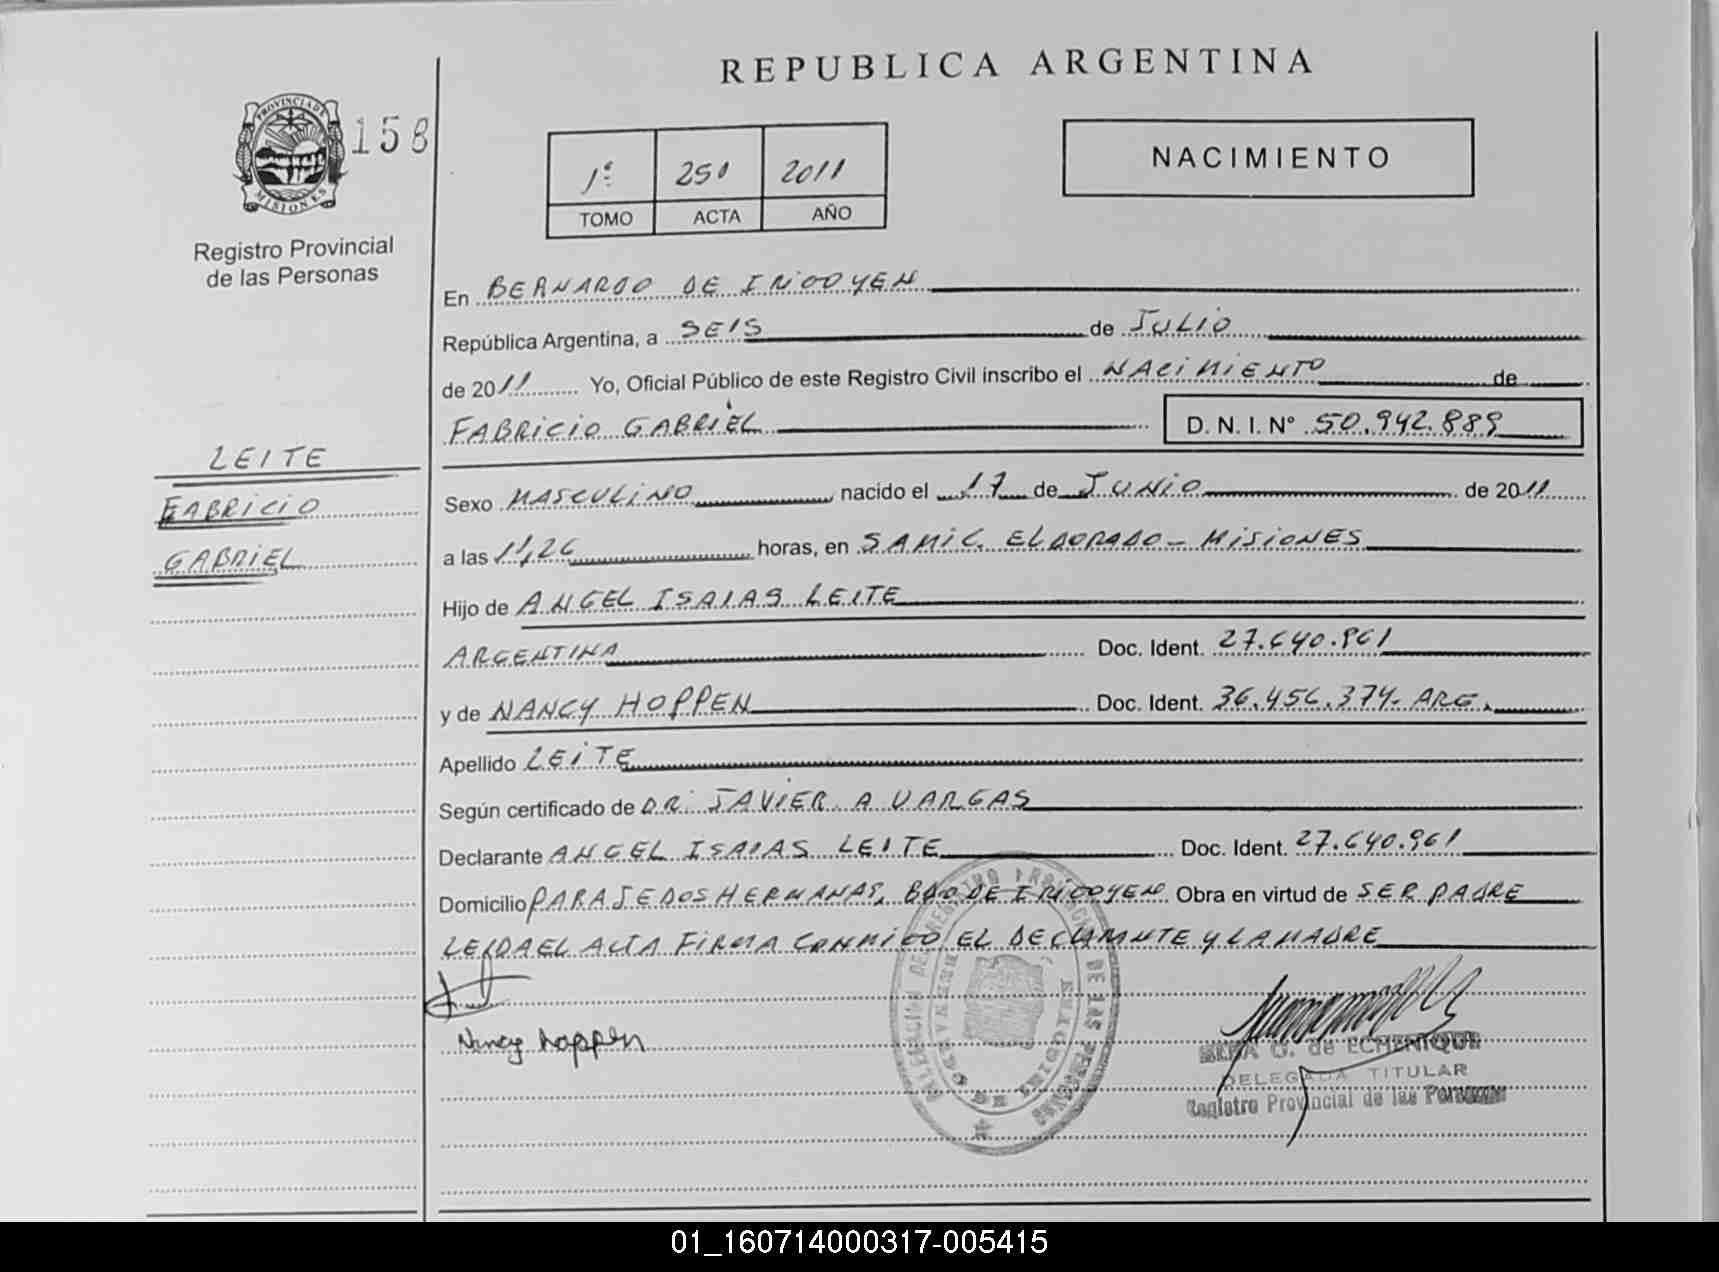 REPUBLICA ARGENTINA
PROVINCIA DE MISIONES
158
Registro Provincial
de las Personas
1º 250 2011
TOMO ACTA AÑO
NACIMIENTO
En BERNARDO DE IRIGOYEN
República Argentina, a SEIS de JULIO
de 2011 Yo, Oficial Público de este Registro Civil inscribo el NACIMIENTO de
FABRICIO GABRIEL D. N. I. Nº 50.942.889
LEITE
FABRICIO
GABRIEL
Sexo MASCULINO nacido el 17 de JUNIO de 2011
a las 11,26 horas, en SAMIC ELDORADO - MISIONES
Hijo de ANGEL ISAIAS LEITE
ARGENTINA Doc. Ident. 27.640.961
y de NANCY HOPPEN Doc. Ident. 36.456.374. ARG.
Apellido LEITE
Según certificado de DR. JAVIER A VARGAS
Declarante ANGEL ISAIAS LEITE Doc. Ident. 27.640.961
Domicilio PARAJE DOS HERMANAS, BDO DE IRIGOYEN Obra en virtud de SER PADRE
LEIDA EL ACTA FIRMA CONMIGO EL DECLARANTE Y LA MADRE
Nancy hoppen
G. de ECHENIQUE
DELEGADA TITULAR
Registro Provincial de las Personas
01_160714000317-005415